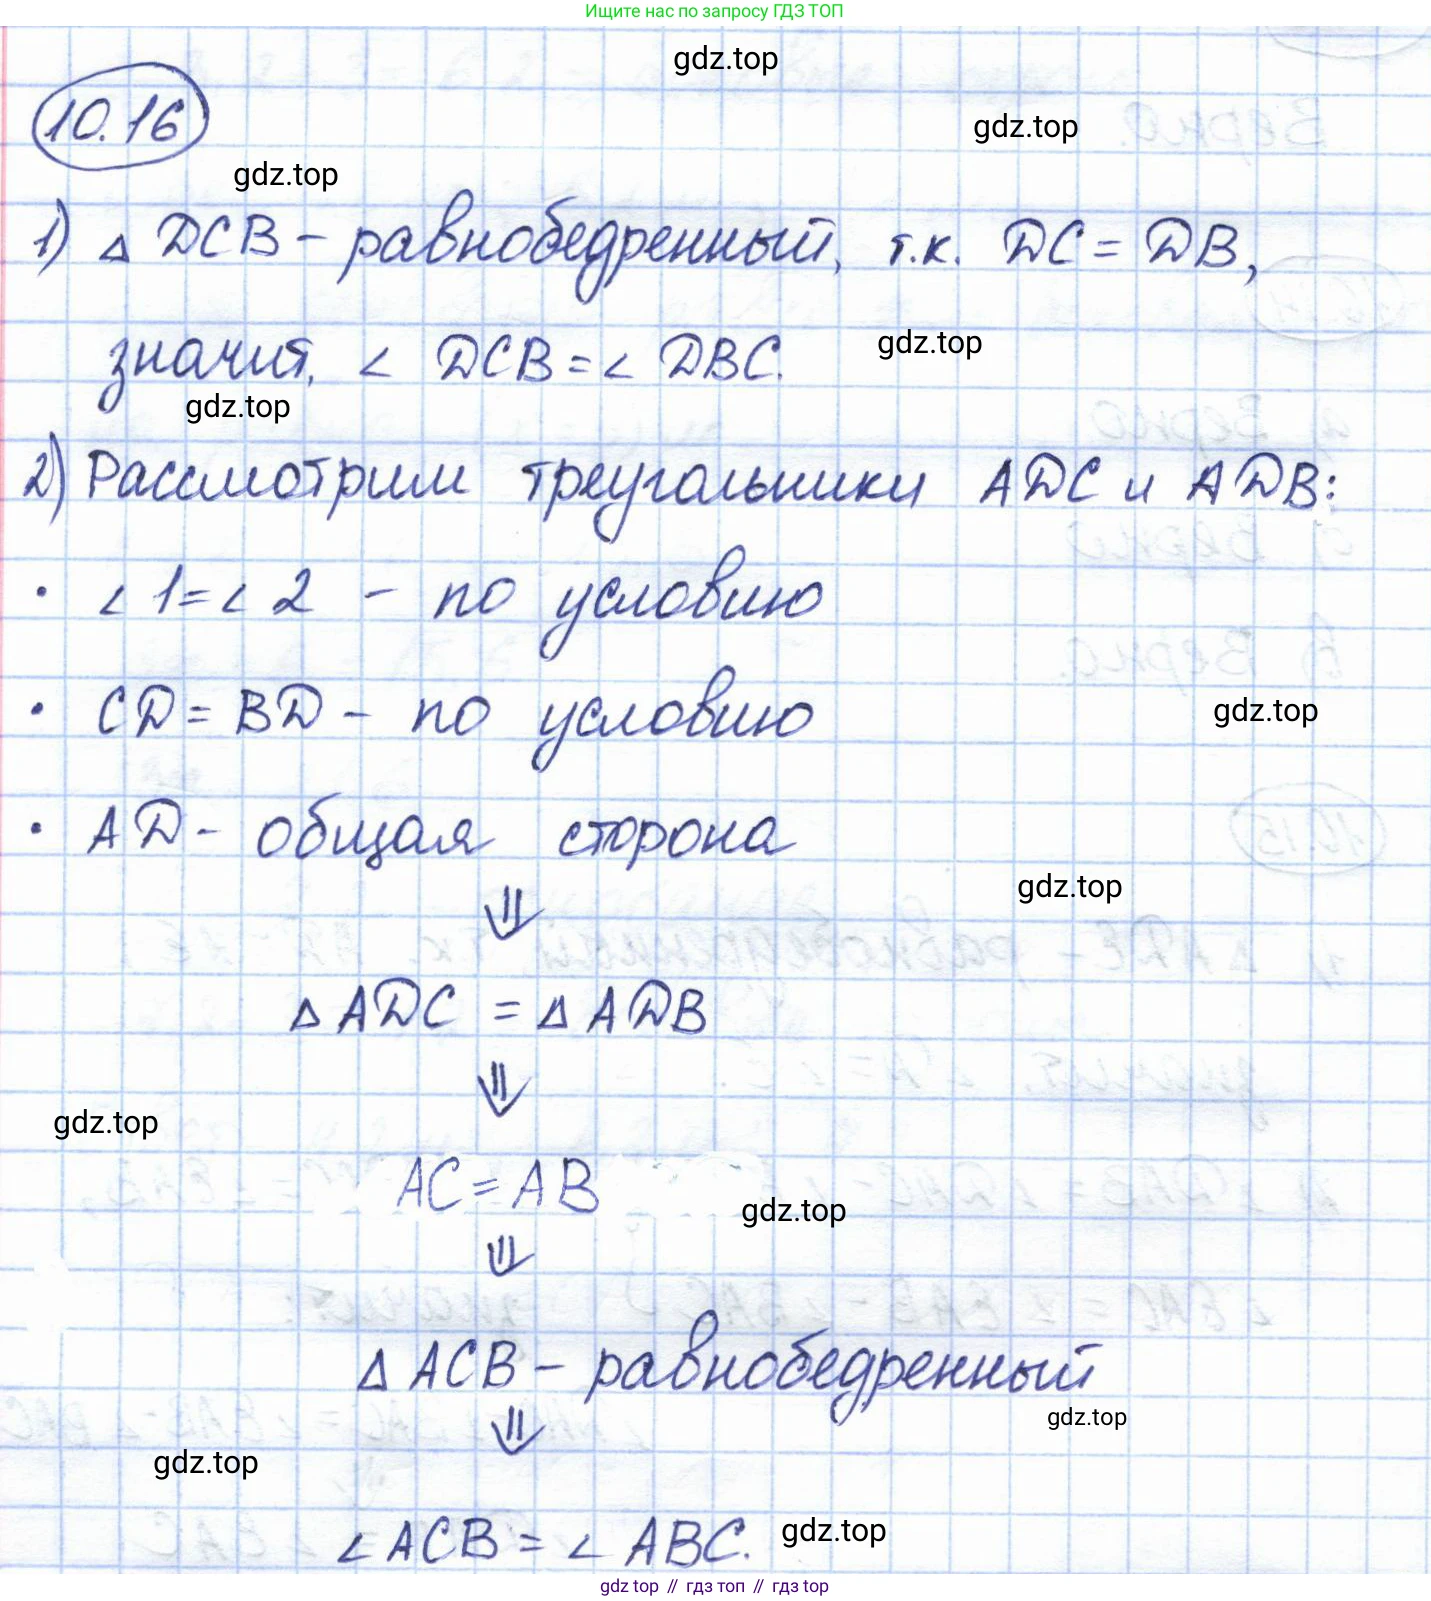 Ищите нас по запросу ГДЗ ТОП
gdz.top
10.16
gdz.top
gdz.top
1) △ DCB - равнобедренный, т.к. DC = DB,
значит, ∠ DCB = ∠ DBC.
gdz.top
gdz.top
2) Рассмотрим треугольники ADC и ADB:
• ∠ 1 = ∠ 2 - по условию
• CD = BD - по условию
gdz.top
• AD - общая сторона
gdz.top
⇓
△ ADC = △ ADB
⇓
gdz.top
AC = AB
gdz.top
⇓
△ ACB - равнобедренный
gdz.top
⇓
gdz.top
∠ ACB = ∠ ABC.
gdz.top
gdz top // гдз топ // gdz top